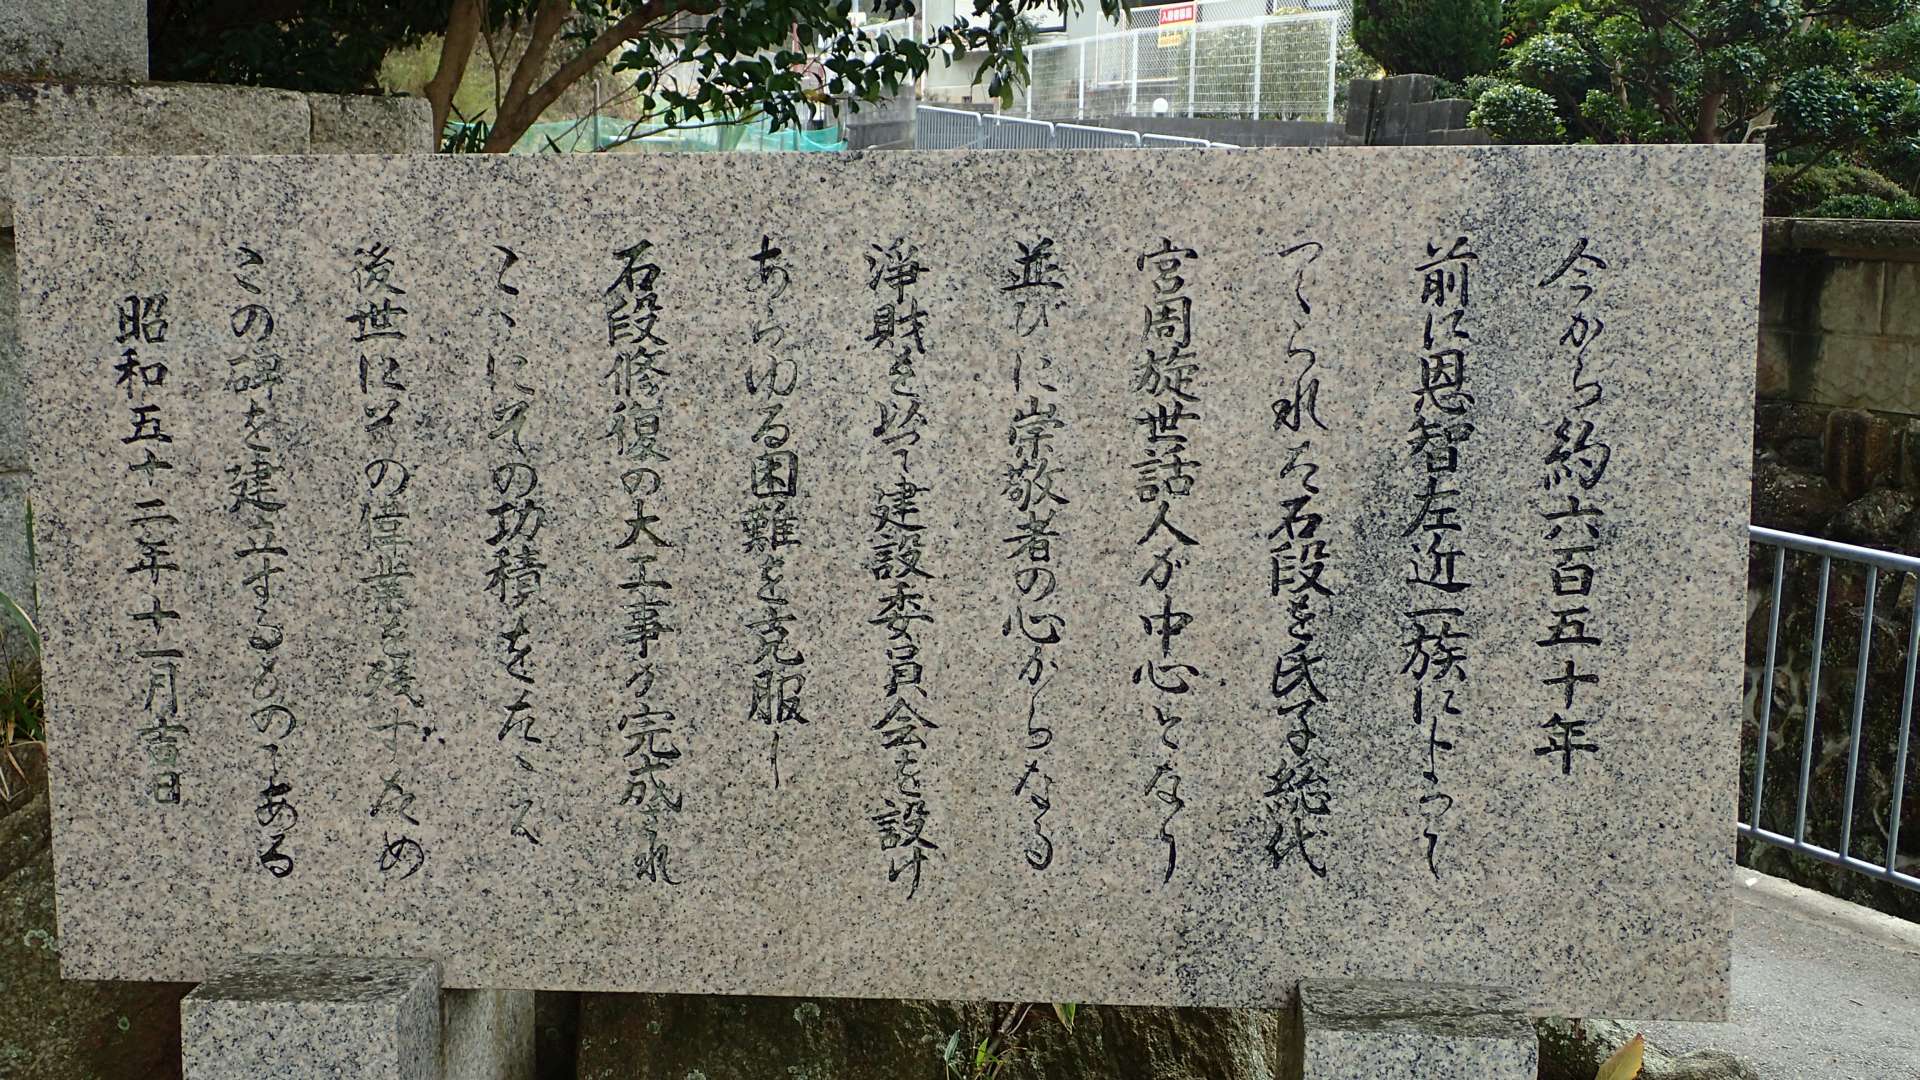 今から約六百五十年
前に恩智左近一族によって
つくられた石段を氏子総代
宮周旋世話人が中心となり
並びに崇敬者の心からなる
淨財を以て建設委員会を設け
あらゆる困難を克服し
石段修復の大工事が完成され
こゝにその功積をたゝえ
後世にその偉業を残すため
この碑を建立するものである
昭和五十二年十一月吉日